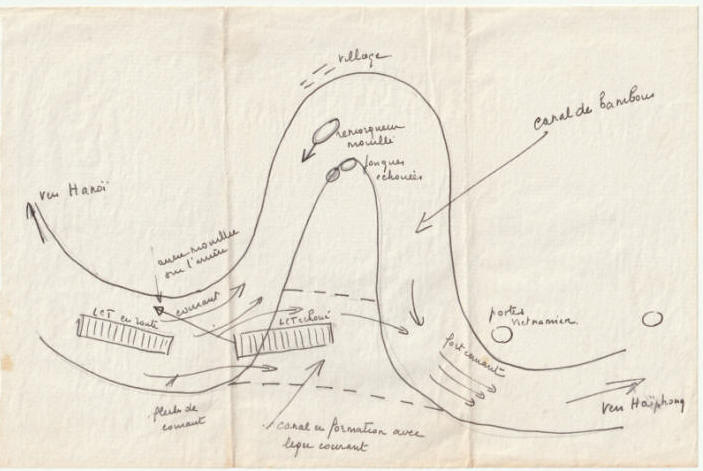 village
canal de bambous
remorqueur
mouillé
jonques
echouées
vers Hanoï
ancre mouillée
sur l'arrière
courant
LCT en route
LCT echoué
postes
vietnamien
fort courant
vers Haïphong
de
courant
canal en formation avec
leger courant